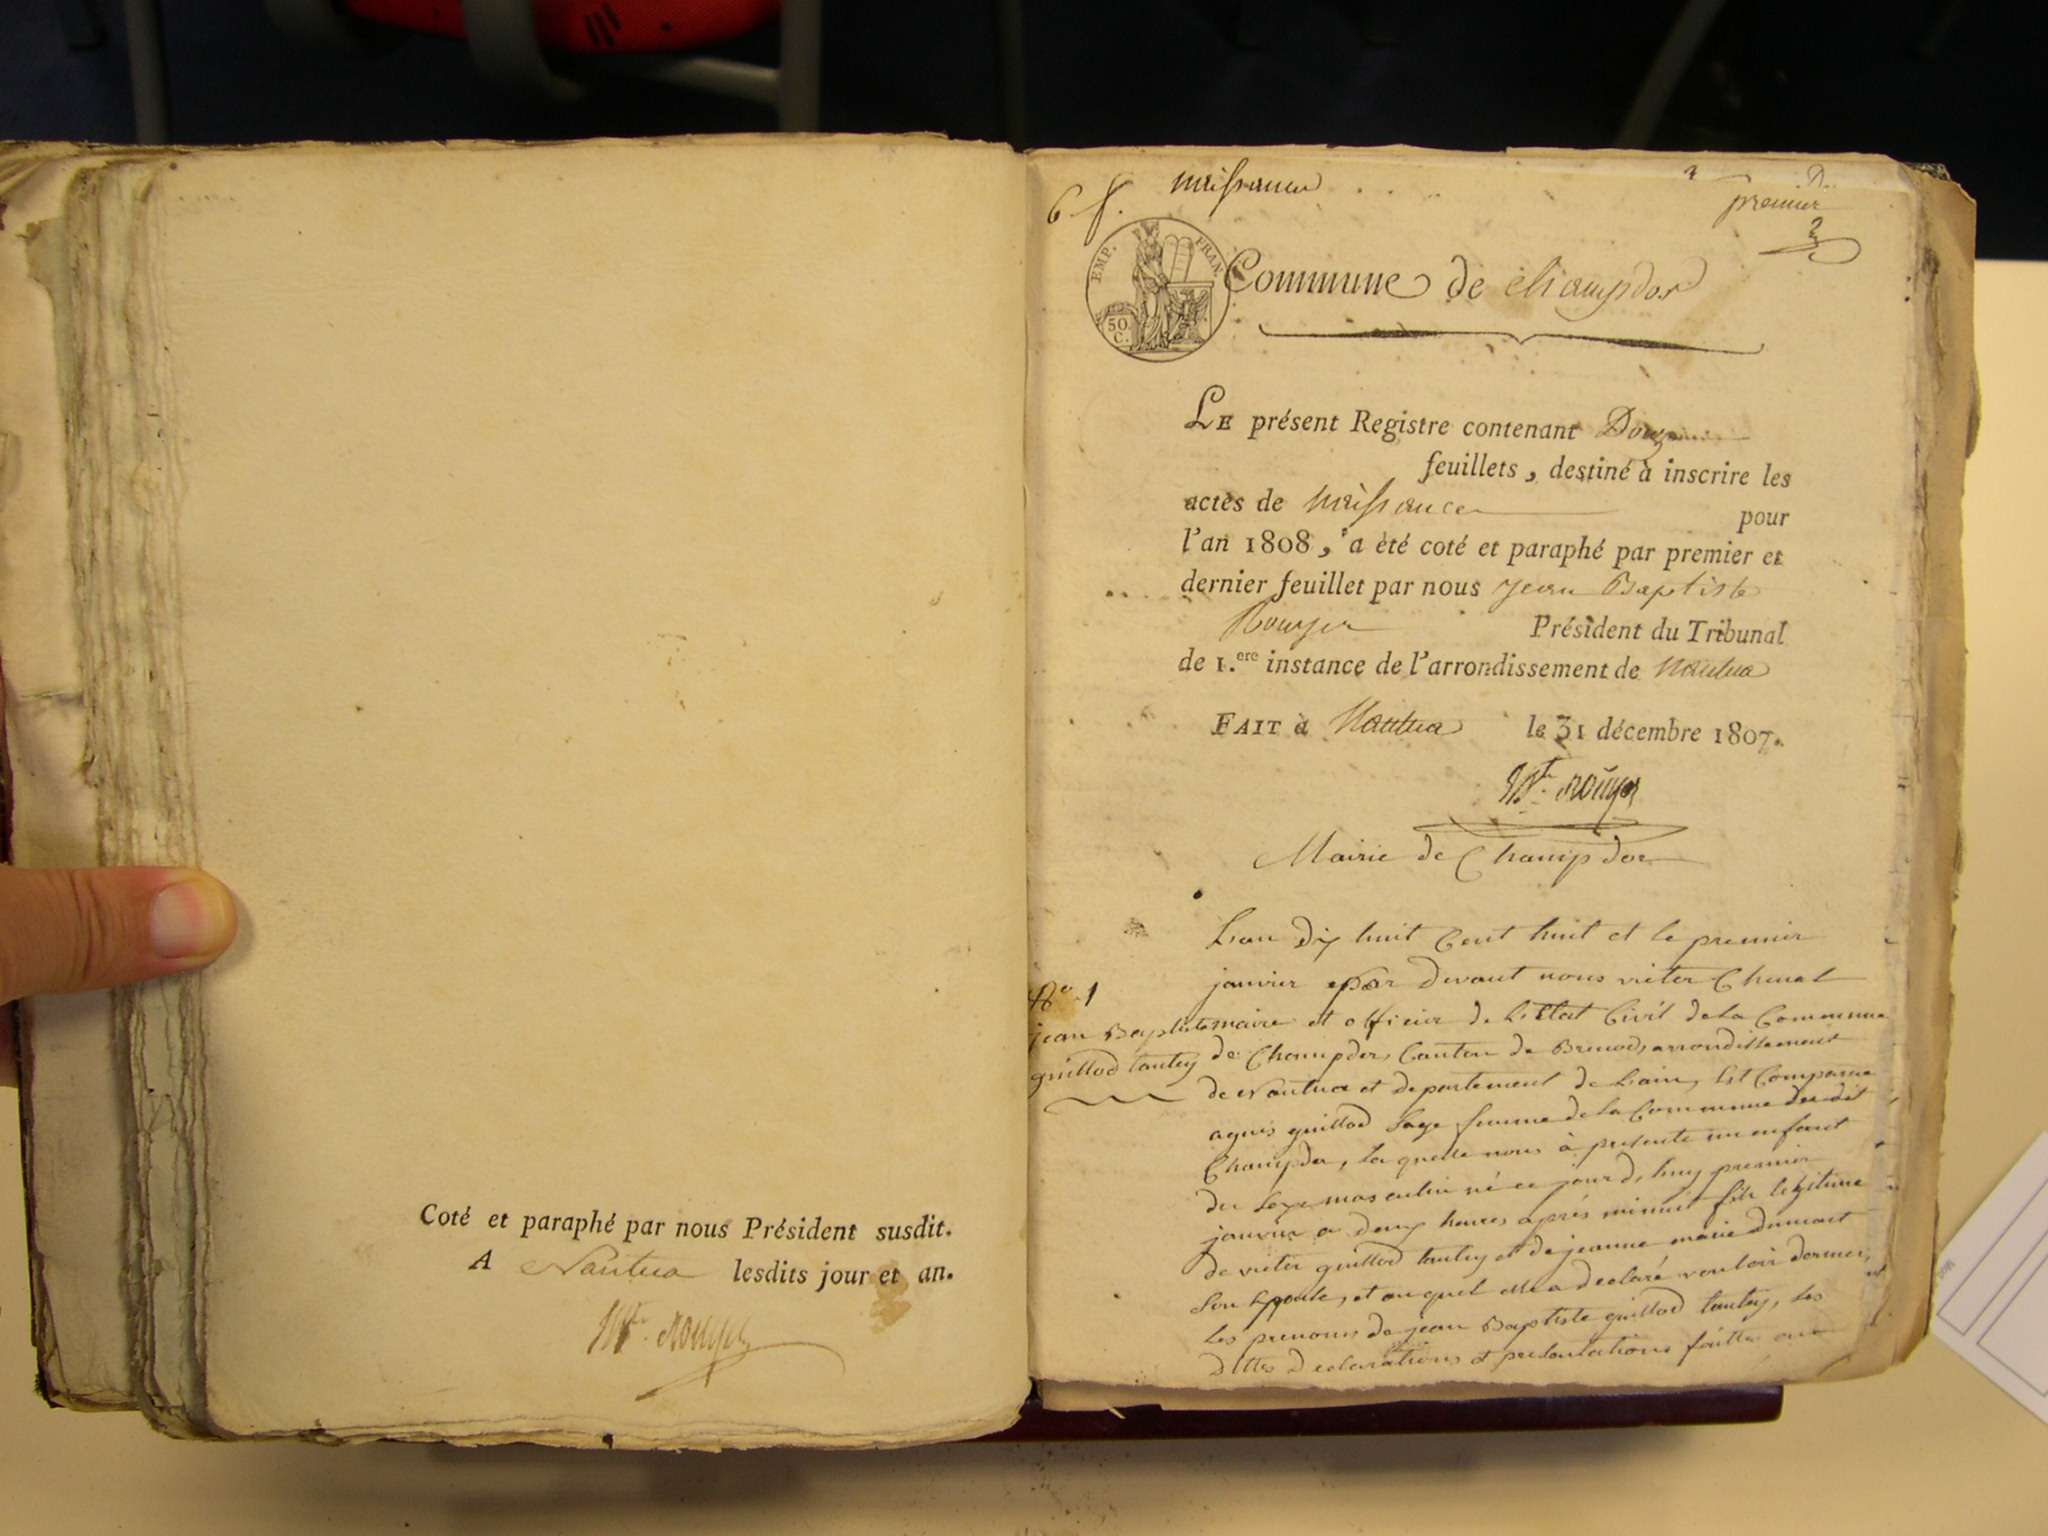 Coté et paraphé par nous Président susdit.
A Nantua lesdits jour et an.
Rouyer
6 f. naissances
premier
EMP. FRAN.
50 C.
Commune de Champdor
LE présent Registre contenant Douze
feuillets, destiné à inscrire les
actes de naissance pour
l'an 1808, a été coté et paraphé par premier et
dernier feuillet par nous jean Baptiste
Rouyer Président du Tribunal
de 1.ere instance de l'arrondissement de nantua
FAIT à Nantua le 31 décembre 1807.
Rouyer
Mairie de Champdor
Lan dix huit Cent huit et le premier
janvier par devant nous victor Chenal
N° 1
jean Baptiste
guillod tantey
maire et officier de Letat Civil de la Commune
de Champdor, Canton de Brenod, arrondissement
de Nantua et departement de Lain, Est Comparue
agnes guillod Sage femme de la Commune du dit
Champdor, la quelle nous à presenté un enfant
du Sexe masculin né ce jour d, huy premier
janvier a deux heures après minuit fils legitime
de victor guillod tantey et de jeanne marie
Son Epouse, et au quel elle a declaré vouloir donner,
Les prenoms de jean Baptiste guillod tantey, Les
dittes declarations et presentations faittes